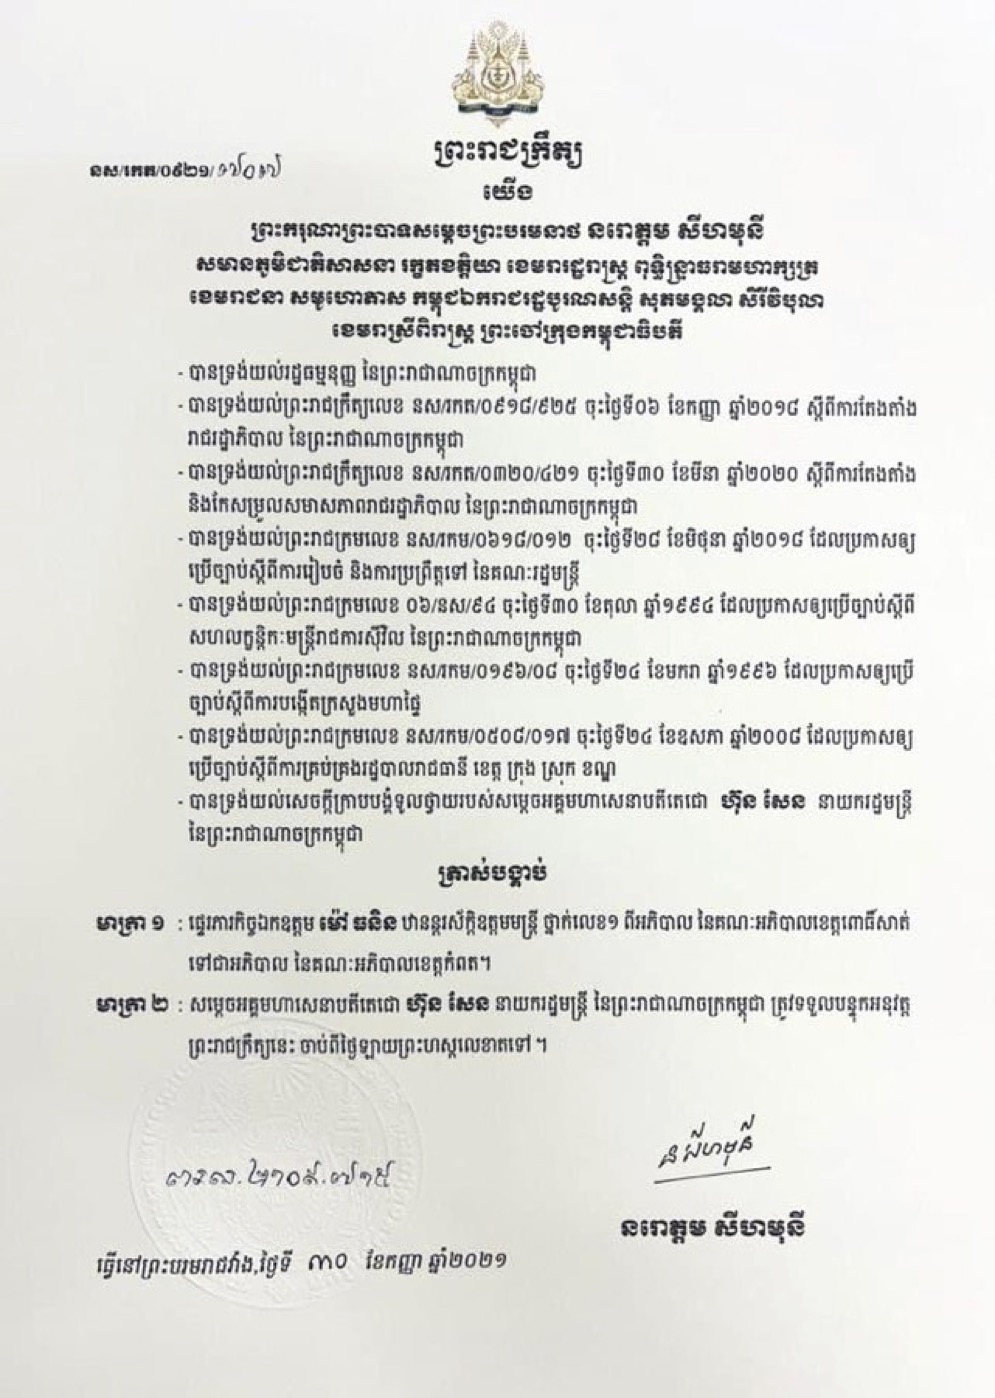 ព្រះរាជក្រឹត្យ
នស/រកត/០៩២១/
យើង
ព្រះករុណាព្រះបាទសម្តេចព្រះបរមនាថ នរោត្តម សីហមុនី
សមានភូមិជាតិសាសនា រក្ខតខត្តិយា ខេមរារដ្ឋរាស្ត្រ ពុទ្ធិន្ទ្រាធរាមហាក្សត្រ
ខេមរាជនា សមូហោភាស កម្ពុជឯករាជរដ្ឋបូរណសន្តិ សុភមង្គលា សិរីវិបុលា
ខេមរាស្រីពិរាស្ត្រ ព្រះចៅក្រុងកម្ពុជាធិបតី
- បានទ្រង់យល់រដ្ឋធម្មនុញ្ញ នៃព្រះរាជាណាចក្រកម្ពុជា
- បានទ្រង់យល់ព្រះរាជក្រឹត្យលេខ នស/រកត/០៩១៨/៩២៥ ចុះថ្ងៃទី០៦ ខែកញ្ញា ឆ្នាំ២០១៨ ស្តីពីការតែងតាំង
រាជរដ្ឋាភិបាល នៃព្រះរាជាណាចក្រកម្ពុជា
- បានទ្រង់យល់ព្រះរាជក្រឹត្យលេខ នស/រកត/០៣២០/៤២១ ចុះថ្ងៃទី៣០ ខែមីនា ឆ្នាំ២០២០ ស្តីពីការតែងតាំង
និងកែសម្រួលសមាសភាពរាជរដ្ឋាភិបាល នៃព្រះរាជាណាចក្រកម្ពុជា
- បានទ្រង់យល់ព្រះរាជក្រមលេខ នស/រកម/០៦១៨/០១២ ចុះថ្ងៃទី២៨ ខែមិថុនា ឆ្នាំ២០១៨ ដែលប្រកាសឲ្យ
ប្រើច្បាប់ស្តីពីការរៀបចំ និងការប្រព្រឹត្តទៅ នៃគណៈរដ្ឋមន្ត្រី
- បានទ្រង់យល់ព្រះរាជក្រមលេខ ០៦/នស/៩៤ ចុះថ្ងៃទី៣០ ខែតុលា ឆ្នាំ១៩៩៤ ដែលប្រកាសឲ្យប្រើច្បាប់ស្តីពី
សហលក្ខន្តិកៈមន្ត្រីរាជការស៊ីវិល នៃព្រះរាជាណាចក្រកម្ពុជា
- បានទ្រង់យល់ព្រះរាជក្រមលេខ នស/រកម/០១៩៦/០៨ ចុះថ្ងៃទី២៤ ខែមករា ឆ្នាំ១៩៩៦ ដែលប្រកាសឲ្យប្រើ
ច្បាប់ស្តីពីការបង្កើតក្រសួងមហាផ្ទៃ
- បានទ្រង់យល់ព្រះរាជក្រមលេខ នស/រកម/០៥០៨/០១៧ ចុះថ្ងៃទី២៤ ខែឧសភា ឆ្នាំ២០០៨ ដែលប្រកាសឲ្យ
ប្រើច្បាប់ស្តីពីការគ្រប់គ្រងរដ្ឋបាលរាជធានី ខេត្ត ក្រុង ស្រុក ខណ្ឌ
- បានទ្រង់យល់សេចក្តីក្រាបបង្គំទូលថ្វាយរបស់សម្តេចអគ្គមហាសេនាបតីតេជោ ហ៊ុន សែន នាយករដ្ឋមន្ត្រី
នៃព្រះរាជាណាចក្រកម្ពុជា
ត្រាស់បង្គាប់
មាត្រា ១ : ផ្ទេរភារកិច្ចឯកឧត្តម ម៉ៅ ធនិន ឋានន្តរស័ក្តិឧត្តមមន្ត្រី ថ្នាក់លេខ១ ពីអភិបាល នៃគណៈអភិបាលខេត្តពោធិ៍សាត់
ទៅជាអភិបាល នៃគណៈអភិបាលខេត្តកំពត។
មាត្រា ២ : សម្តេចអគ្គមហាសេនាបតីតេជោ ហ៊ុន សែន នាយករដ្ឋមន្ត្រី នៃព្រះរាជាណាចក្រកម្ពុជា ត្រូវទទួលបន្ទុកអនុវត្ត
ព្រះរាជក្រឹត្យនេះ ចាប់ពីថ្ងៃឡាយព្រះហស្តលេខាតទៅ។
នរោត្តម សីហមុនី
ធ្វើនៅព្រះបរមរាជវាំង,ថ្ងៃទី ៣០ ខែកញ្ញា ឆ្នាំ២០២១